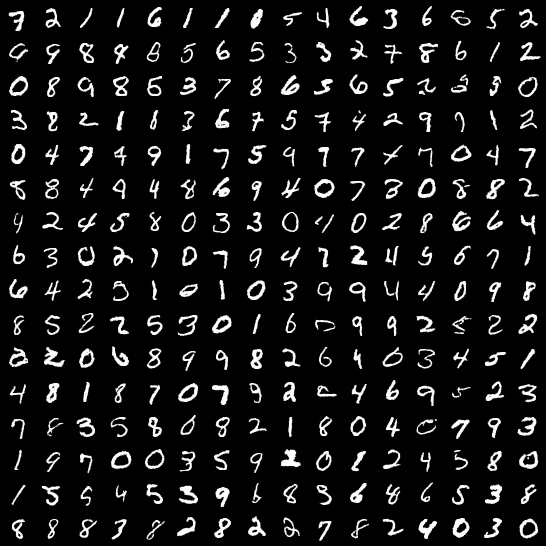 7 2 1 1 6 1 1 0 5 4 6 3 6 5 2
9 9 8 9 8 5 6 5 3 3 2 7 8 6 1 2
0 8 9 8 5 3 7 8 6 5 6 5 2 2 3 0
3 8 2 1 1 3 6 7 5 7 4 2 9 7 1 2
0 4 7 4 9 1 7 5 9 7 7 7 0 4 7
8 8 4 9 4 8 6 9 4 0 7 3 0 8 8 2
9 2 4 5 8 0 3 3 0 4 0 2 8 6 6 4
6 3 0 2 1 0 7 9 4 7 2 4 5 6 7 1
6 4 2 5 1 0 1 0 3 9 9 4 4 0 9 8
8 5 2 2 5 3 0 1 6 9 9 2 2 2
2 2 0 6 8 9 9 8 2 6 4 0 3 4 5 1
4 8 1 8 7 0 7 9 2 4 6 9 5 2 3
7 8 3 5 8 0 8 2 1 8 0 4 0 7 9 3
1 9 7 0 0 3 5 9 2 0 1 2 4 5 8 0
1 5 5 4 5 3 9 6 8 3 6 8 6 5 3 8
8 8 8 3 8 2 8 2 2 7 8 2 4 0 3 0